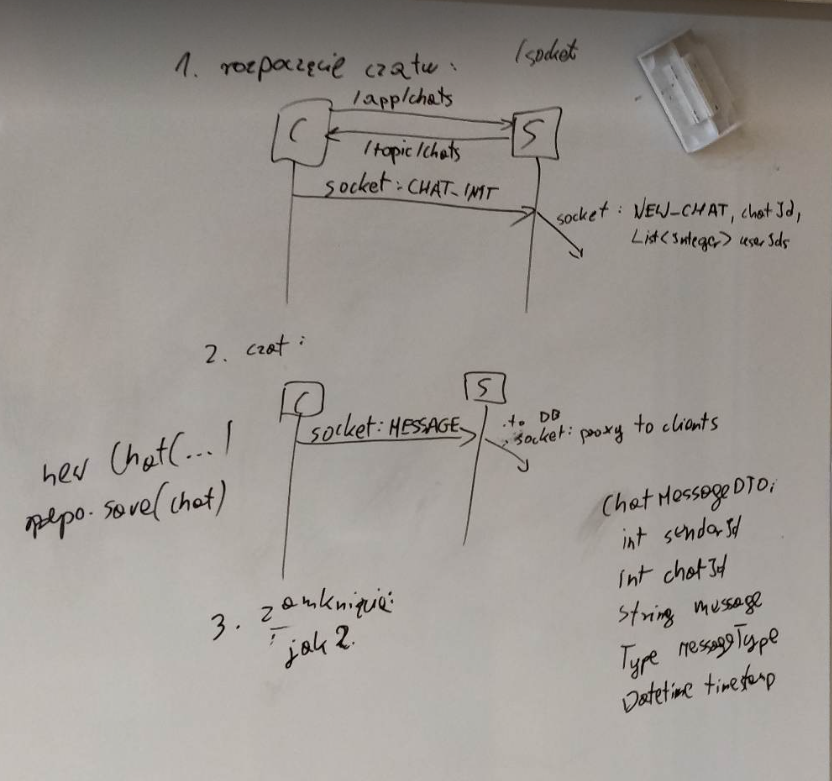 1. rozpoczęcie czatu:
/socket
/app/chats
C
S
/topic/chats
socket: CHAT_INIT
socket: NEW_CHAT, chatId,
List<Integer> userIds
2. czat:
C
S
socket: MESSAGE
to DB
socket: proxy to clients
new Chat(...)
repo.save(chat)
ChatMessageDTO:
int senderId
int chatId
String message
Type messageType
Datetime timestamp
3. zamknięcie:
jak 2.